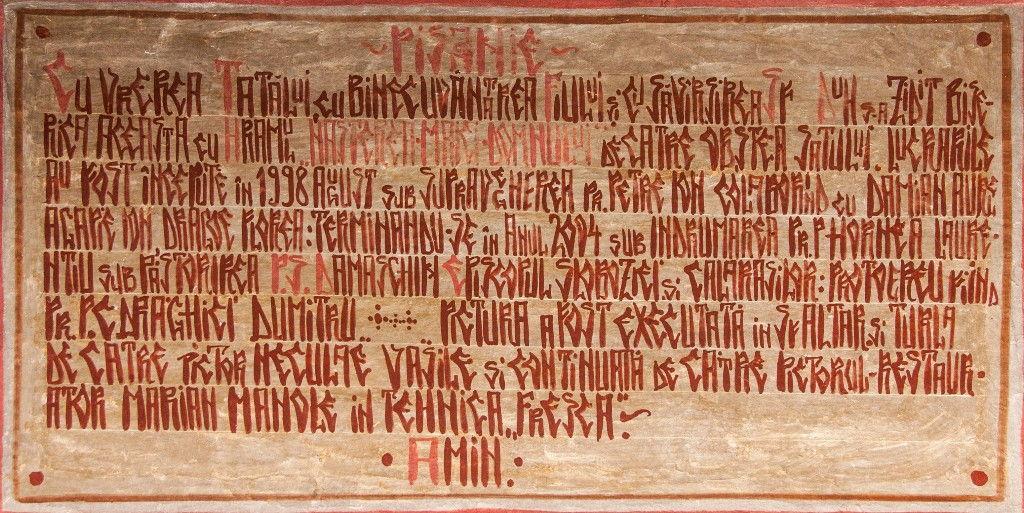 ~ PISANIE ~
CU VREREA TATĂLUI CU BINECUVÂNTAREA FIULUI ȘI CU SĂVÂRȘIREA SF DUH S-A ZIDIT BISE-
RICA ACEASTA CU HRAMU "NASTEREA MAICI DOMNULUI" DE CATRE OBSTEA SATULUI. LUCRARILE
AU FOST ÎNCEPUTE IN 1998 AUGUST SUB SUPRAVEGHEREA PR. PETRE ION COLABORIND CU DAMIAN AUREL
AGAPE ION DRAGNE FLOREA: TERMINANDU-SE IN ANUL 2004 SUB INDRUMAREA PR. P HORNEA LAURE-
NTIU SUB PĂSTORIREA P.S. DAMASCHIN EPISCOPUL SLOBOZIEI SI CALARASILOR: PROTOEREU FIIND
PR. P.C. DRAGHICI DUMITRU PICTURA A FOST EXECUTATĂ IN SF ALTAR SI TURLA
DE CATRE PICTOR NECULAE VASILE SI CONTINUATĂ DE CATRE PICTORUL-RESTAUR-
ATOR MARIAN MANOLE IN TEHNICA "FRESCA" ~
• AMIN •